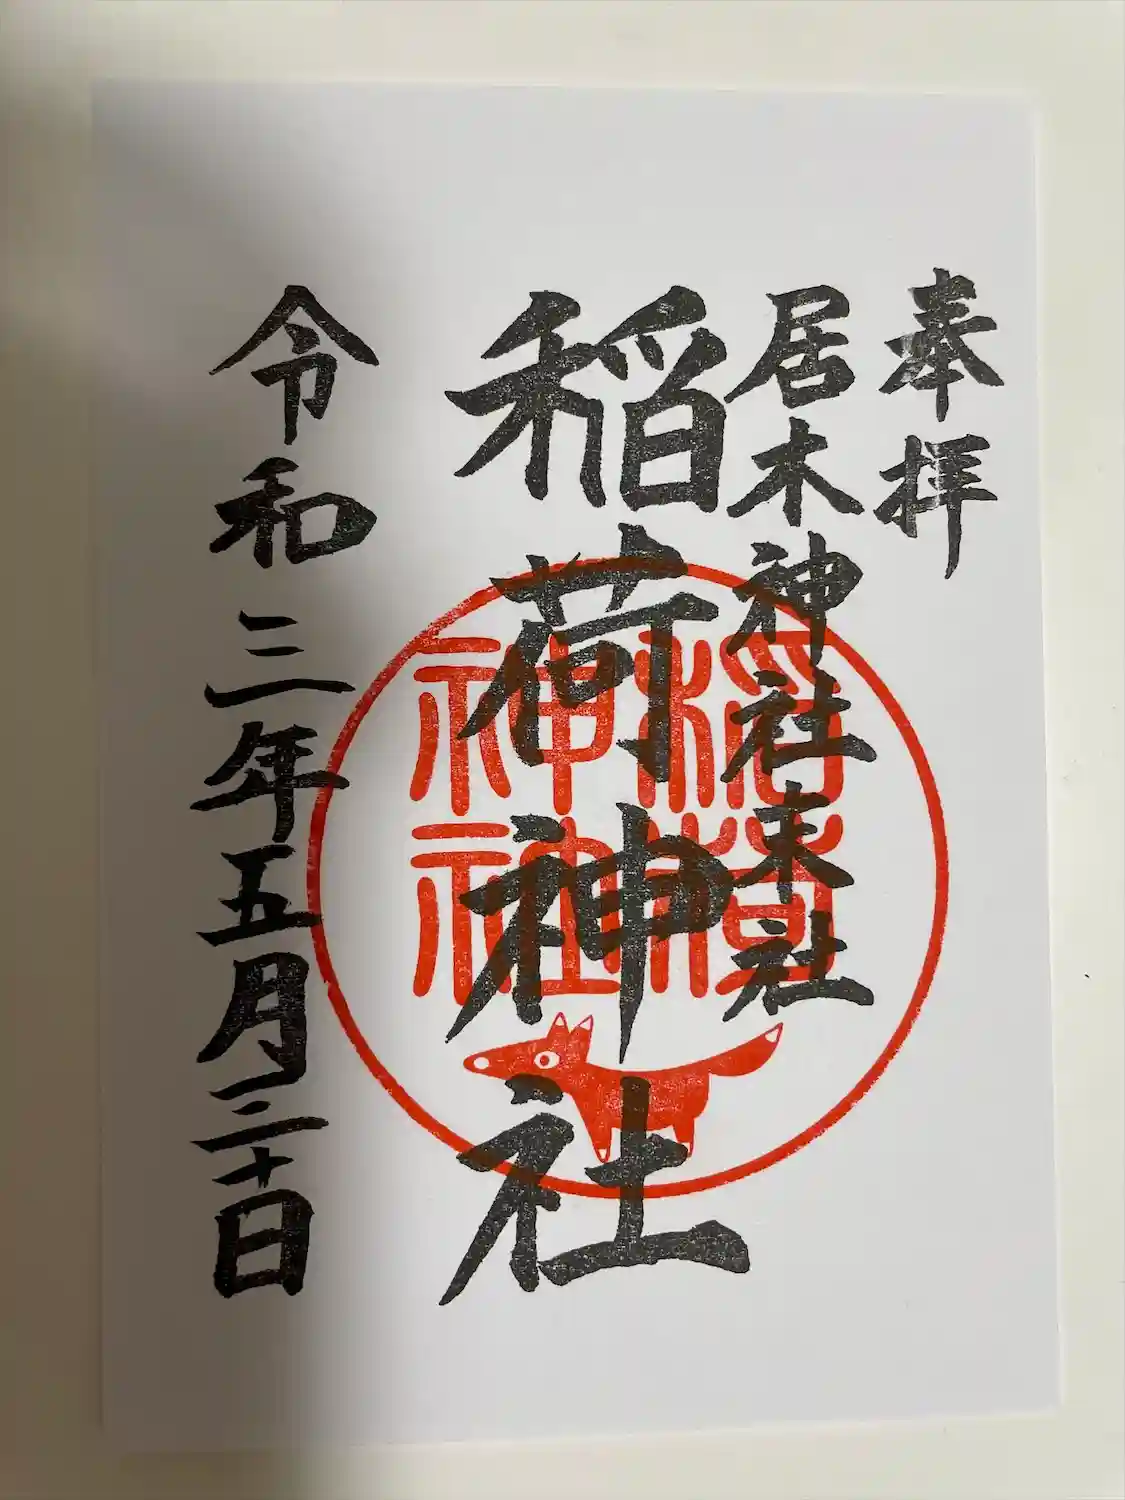 奉拝
居木神社末社
稲荷神社
令和三年五月三十日
稲荷
神社